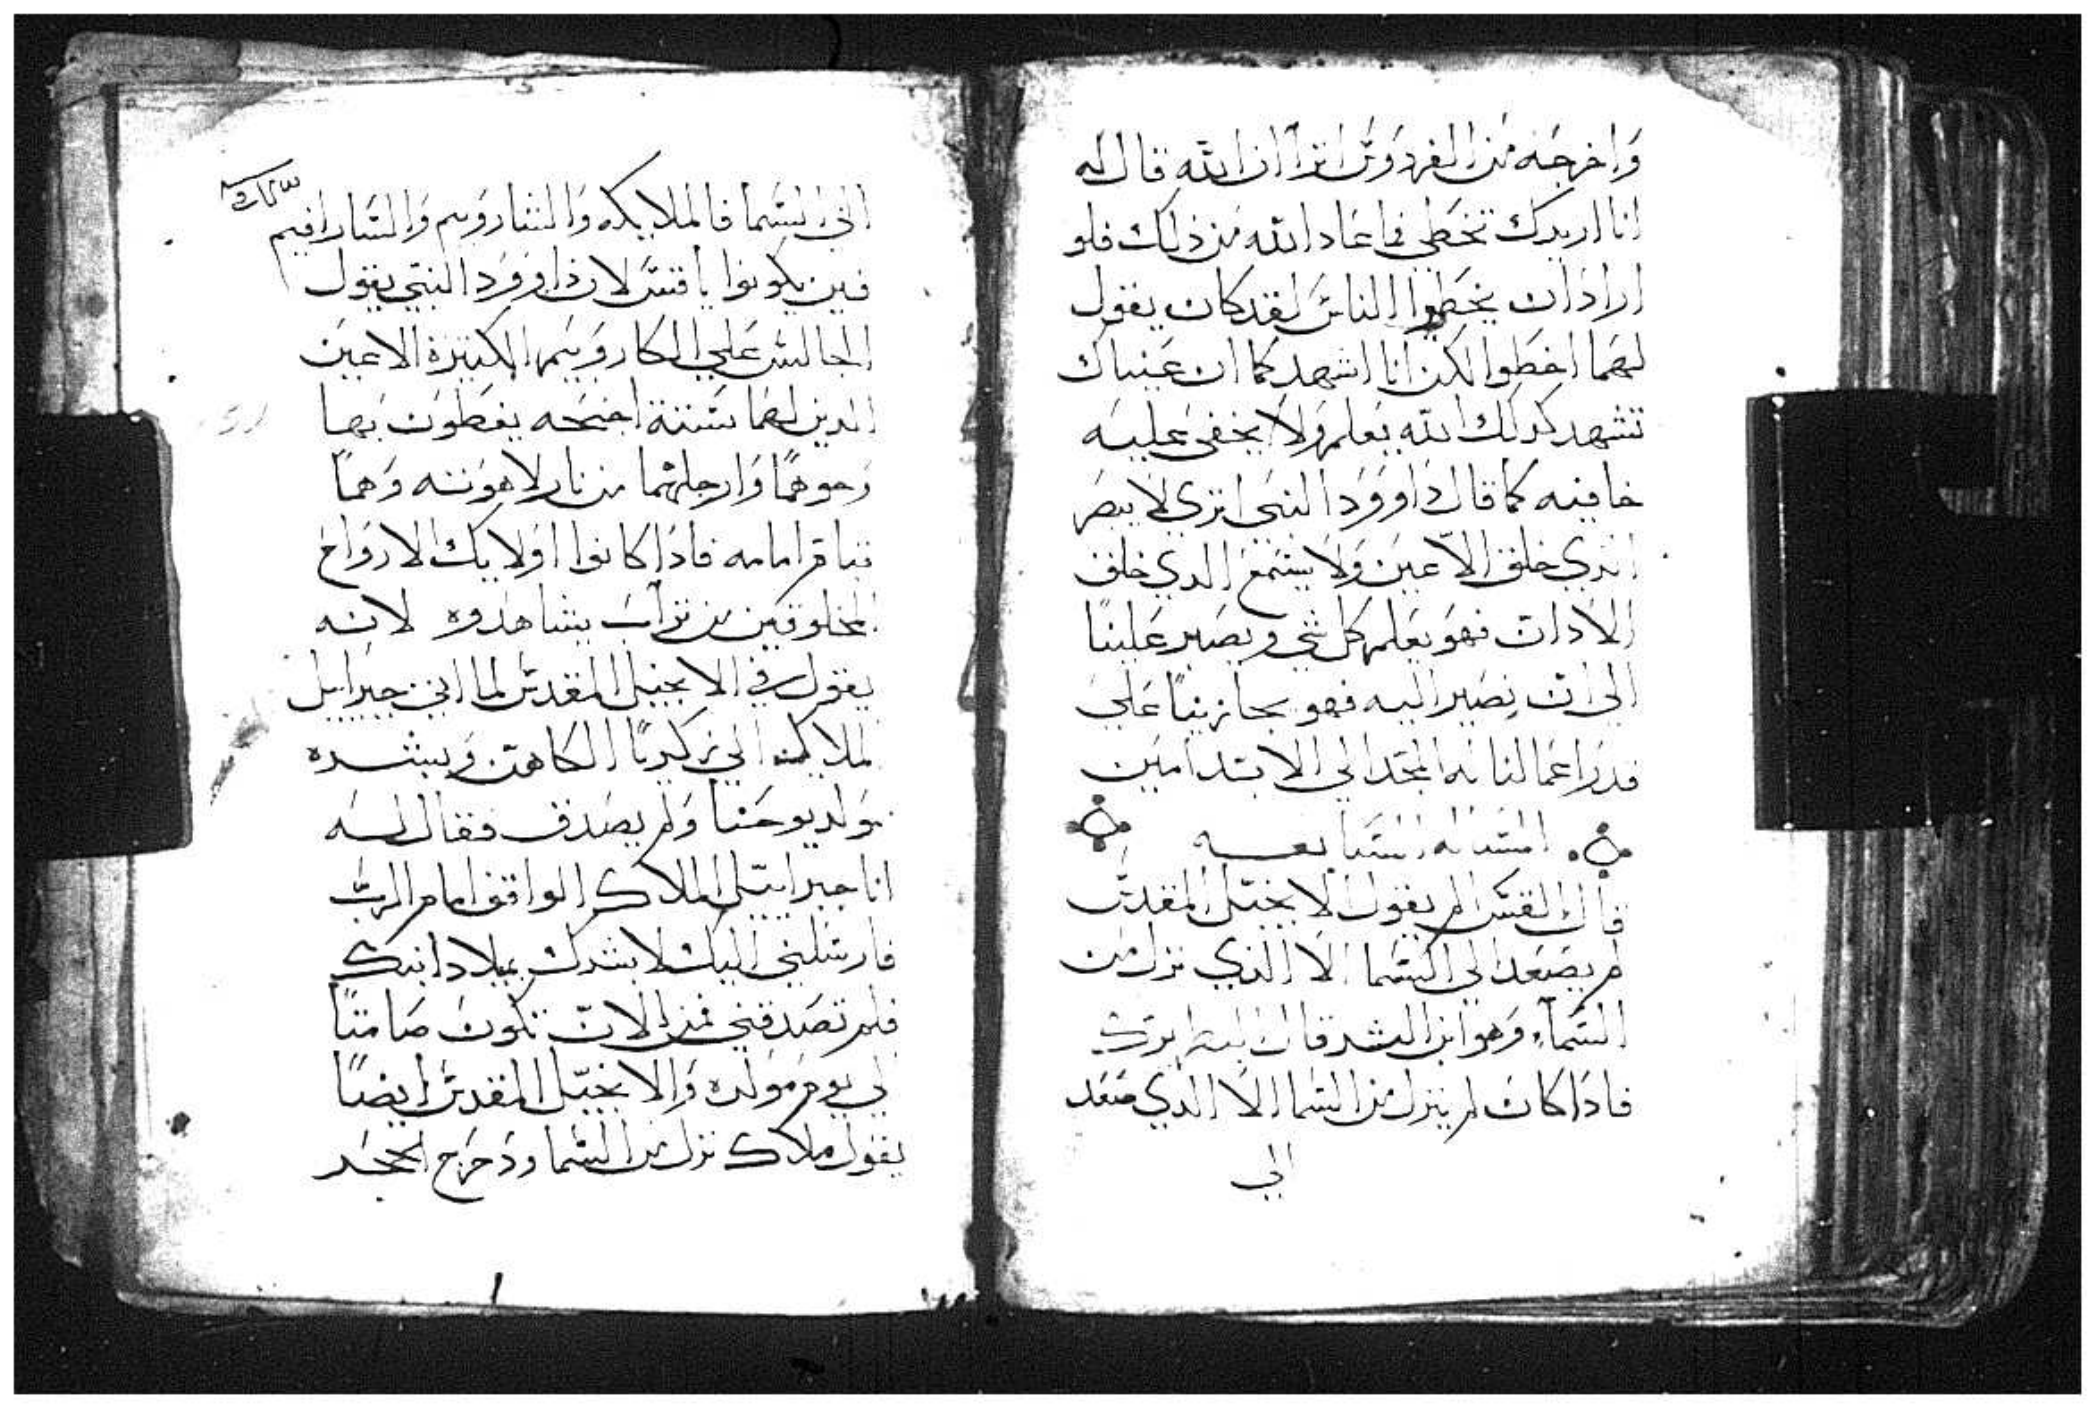 وَاخرجَه مَن الفردوَس اترا ان الله قال له
انا اريدك تخطي فما عَاد الله مَن ذلك فلو
اراد ان يخطوا الناسَ لقد كان يقول
لهَما اخطوا لكن انا اشهدكما ان عَينباك
تشهد كدلك الله يَعلم وَلا يخفى عليَه
خافيه كما قال دَاووَد النبَي اتري لا يبصَر
الذي خلق الاعين وَلا يسَمع الدي خلق
الادان فهوَ يعَلم كل شي وَيصَبر عَلينَا
الي ان نصَير اليه فهو يجازينَا عَلي
قدرَ اعمالنا له المجَد الي الابد امَين
المسَاله السَابعه
قال القسَ الم يقول الانجيل المقدسَ
لم يصَعَد الي السَما الا الذي نزل مَن
السَماء وَهوَ ابن البشر قال
فاذا كان لم ينزل من السَما الا الذي صَعَد
الي
الي السَما فالملايكه وَالشاروَبيم وَالسَارافيم
فين يكونوا يا قسَ لان داووَد النبَي يقول
الجالسَ عَلي الكاروَبيَم الكتيرة الاعين
الدين لهَما سَتة اجنحَه يغطون بهَا
وَجوهمَا وَارجلهما من نار لاهوَته وَهمَا
قيام امامه فادَا كانوا اوَلايك الارَواح
المخلوقين من ترابَ يشاهدَوه لانه
يقول في الانجيل المقدسَ لما اتي جبرَاييل
الملاك الي زكريَا الكاهَن وَيبشره
بمَولد يوحَنا وَلم يصَدق فقال لَه
انا جبراييَل الملاك الواقف امام الربَ
فارسَلني اليك لابشرك بميلاد ابنك
فلم تصَدقني فمن الان تكون صَامتًا
الي يوم مَولده وَالانجيَل المقدسَ ايضَا
يقول ملاك نزل من السَما ودَحرَج الحجَر